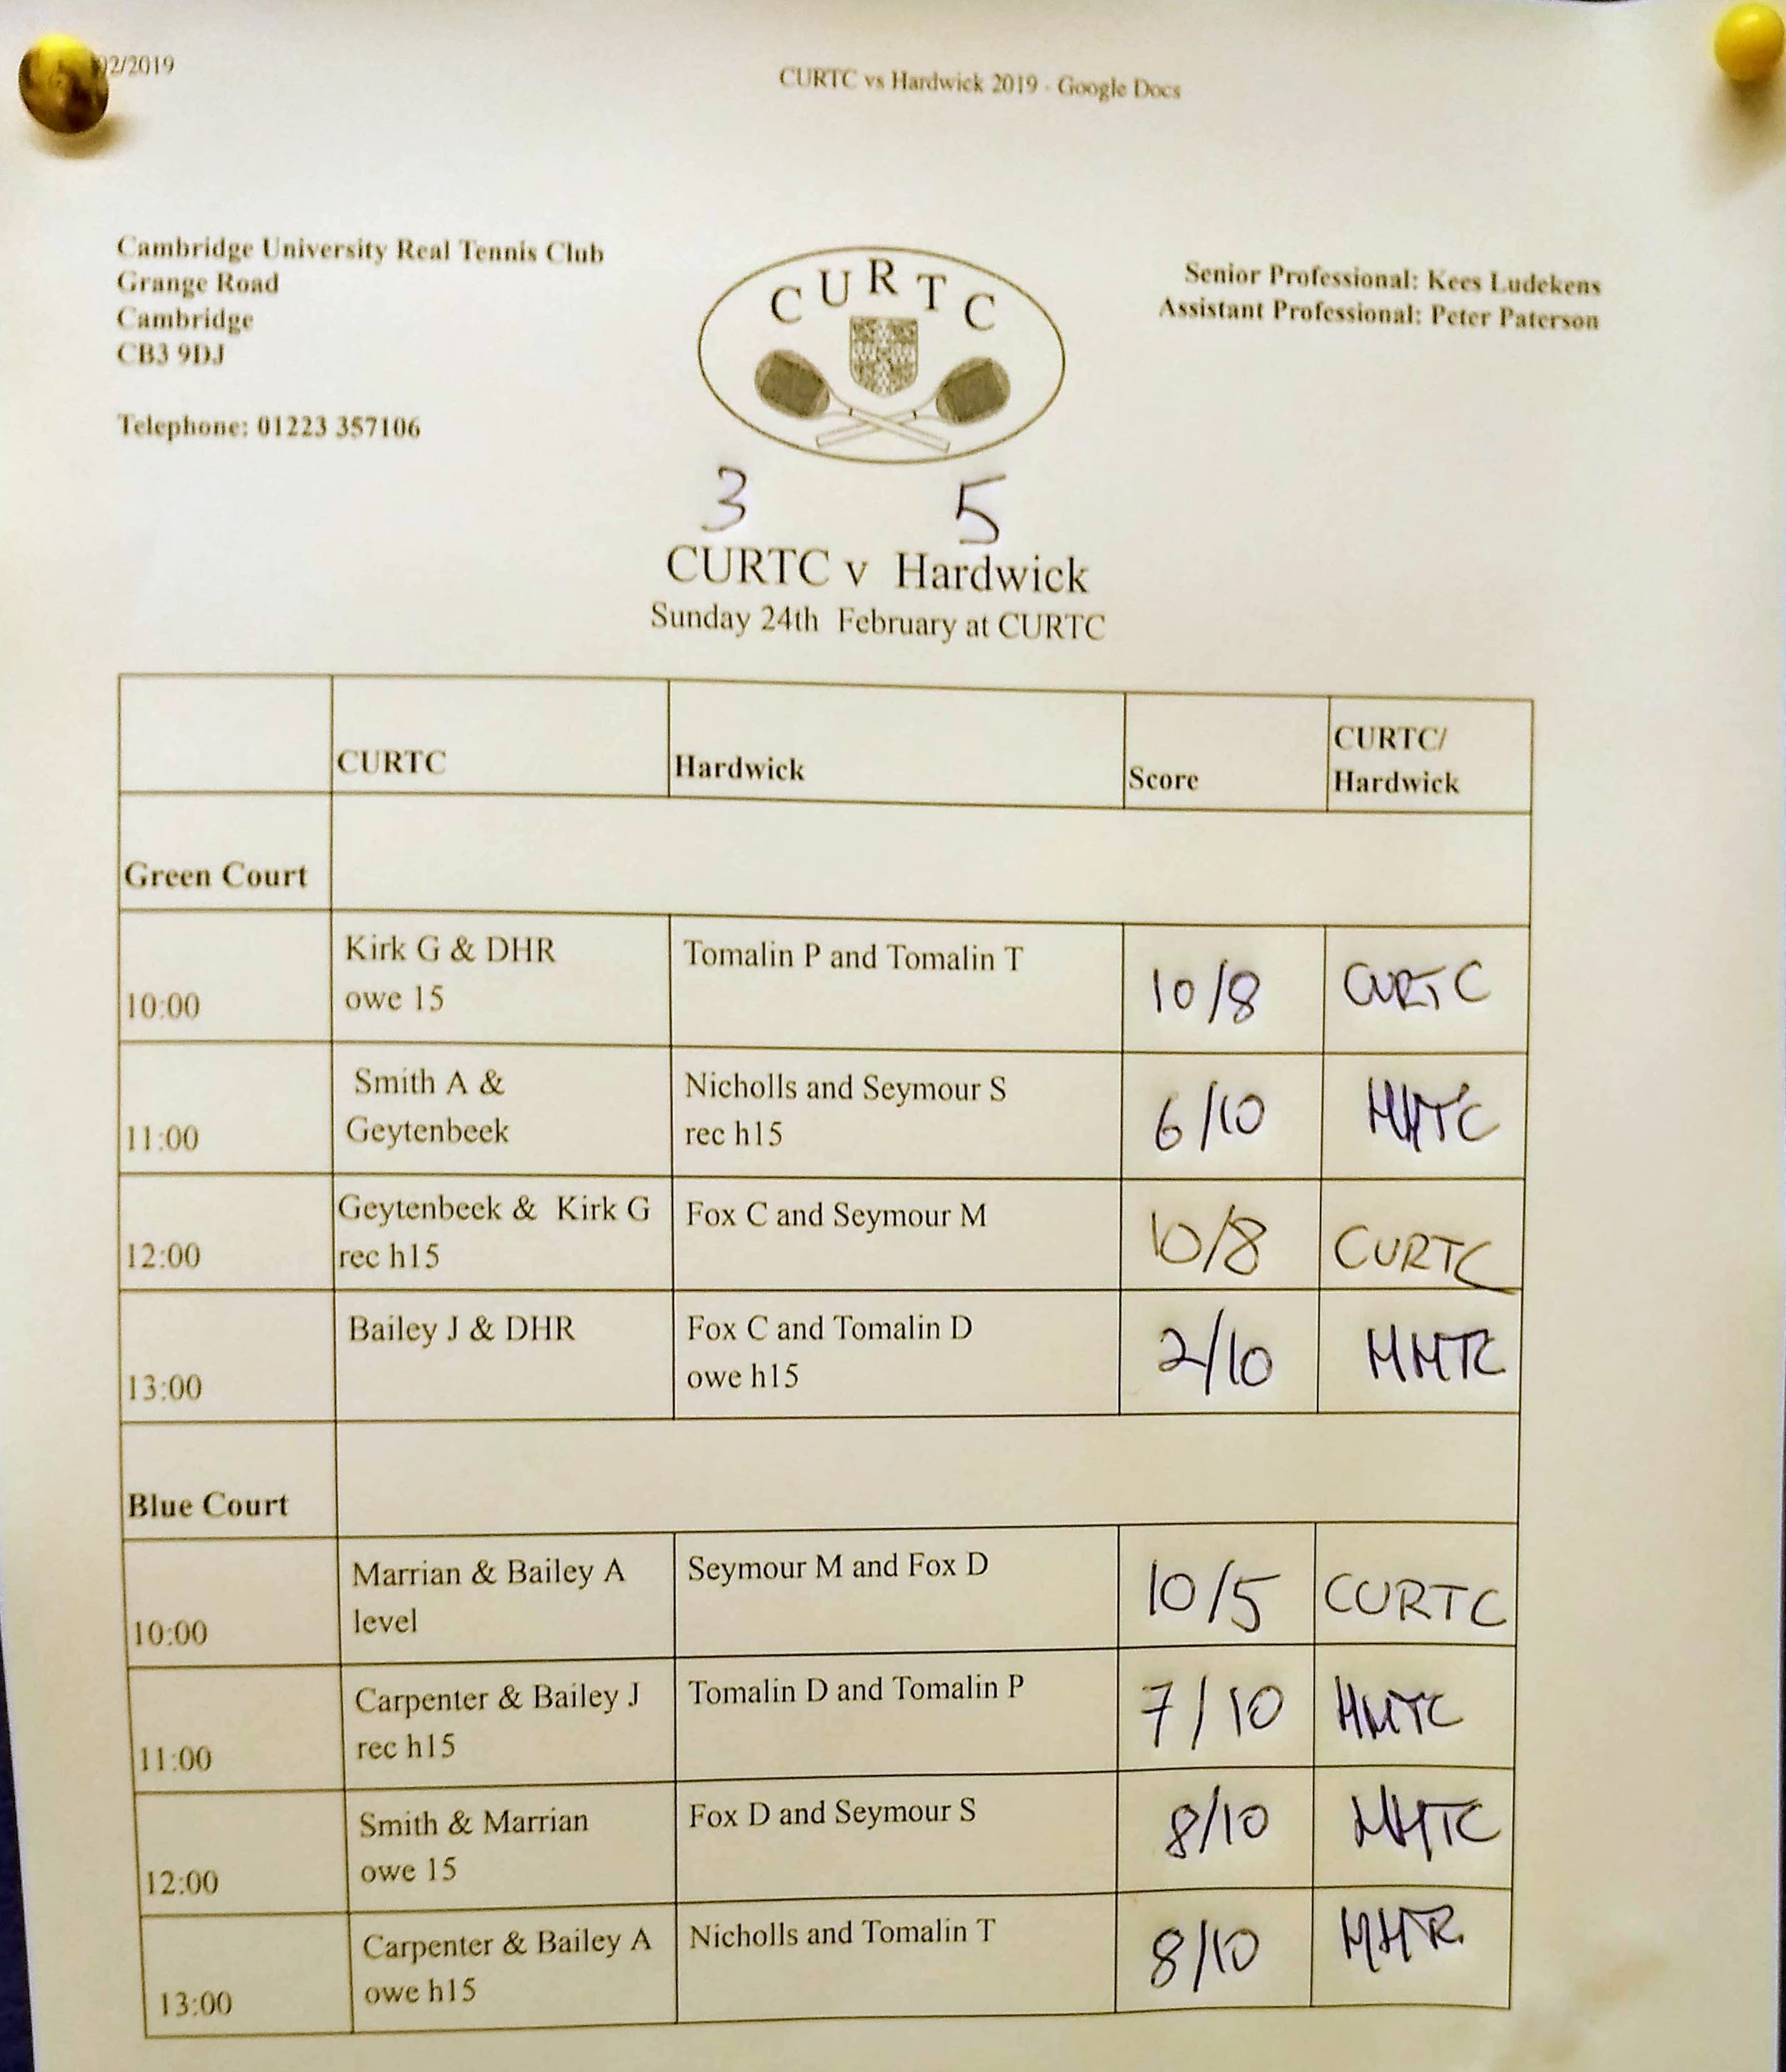 02/2019
CURTC vs Hardwick 2019 - Google Docs
Cambridge University Real Tennis Club
Grange Road
Cambridge
CB3 9DJ
Telephone: 01223 357106
CURTC
Senior Professional: Kees Ludekens
Assistant Professional: Peter Paterson
3 5
CURTC v Hardwick
Sunday 24th February at CURTC
CURTC Hardwick Score CURTC/
Hardwick
Green Court
Kirk G & DHR Tomalin P and Tomalin T
10:00 owe 15 10/8 CURTC
Smith A & Nicholls and Seymour S
11:00 Geytenbeek rec h15 6/10 HHTC
Geytenbeek & Kirk G Fox C and Seymour M
12:00 rec h15 10/8 CURTC
Bailey J & DHR Fox C and Tomalin D
13:00 owe h15 2/10 HHTC
Blue Court
Marrian & Bailey A Seymour M and Fox D
10:00 level 10/5 CURTC
Carpenter & Bailey J Tomalin D and Tomalin P
11:00 rec h15 7/10 HHTC
Smith & Marrian Fox D and Seymour S
12:00 owe 15 8/10 HHTC
Carpenter & Bailey A Nicholls and Tomalin T
13:00 owe h15 8/10